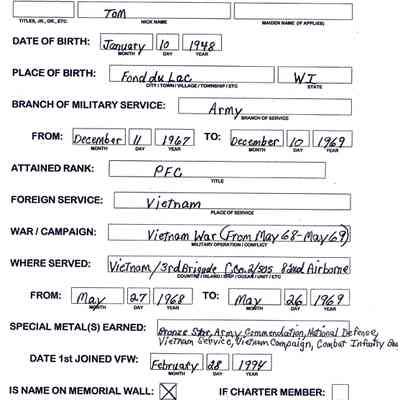 Tom
TITLES, JR., SR., ETC. NICK NAME MAIDEN NAME (IF APPLIES)
DATE OF BIRTH: January 10 1948
MONTH DAY YEAR
PLACE OF BIRTH: Fond du Lac WI
CITY / TOWN / VILLAGE / TOWNSHIP / ETC STATE
BRANCH OF MILITARY SERVICE: Army
BRANCH OF SERVICE
FROM: December 11 1967 TO: December 10 1969
MONTH DAY YEAR MONTH DAY YEAR
ATTAINED RANK: PFC
TITLE
FOREIGN SERVICE: Vietnam
PLACE OF SERVICE
WAR / CAMPAIGN: Vietnam War (From May 68-May 69)
MILITARY OPERATION / CONFLICT
WHERE SERVED: Vietnam/3rd Brigade C.Co. 2/505 82nd Airborne
COUNTRY / ISLAND / SHIP / OCEAN / UNIT / ETC
FROM: May 27 1968 TO: May 26 1969
MONTH DAY YEAR MONTH DAY YEAR
SPECIAL METAL(S) EARNED: Bronze Star, Army Commendation, National Defense,
Vietnam Service, Vietnam Campaign, Combat Infantry
DATE 1st JOINED VFW: February 28 1994
MONTH DAY YEAR
IS NAME ON MEMORIAL WALL: X IF CHARTER MEMBER: